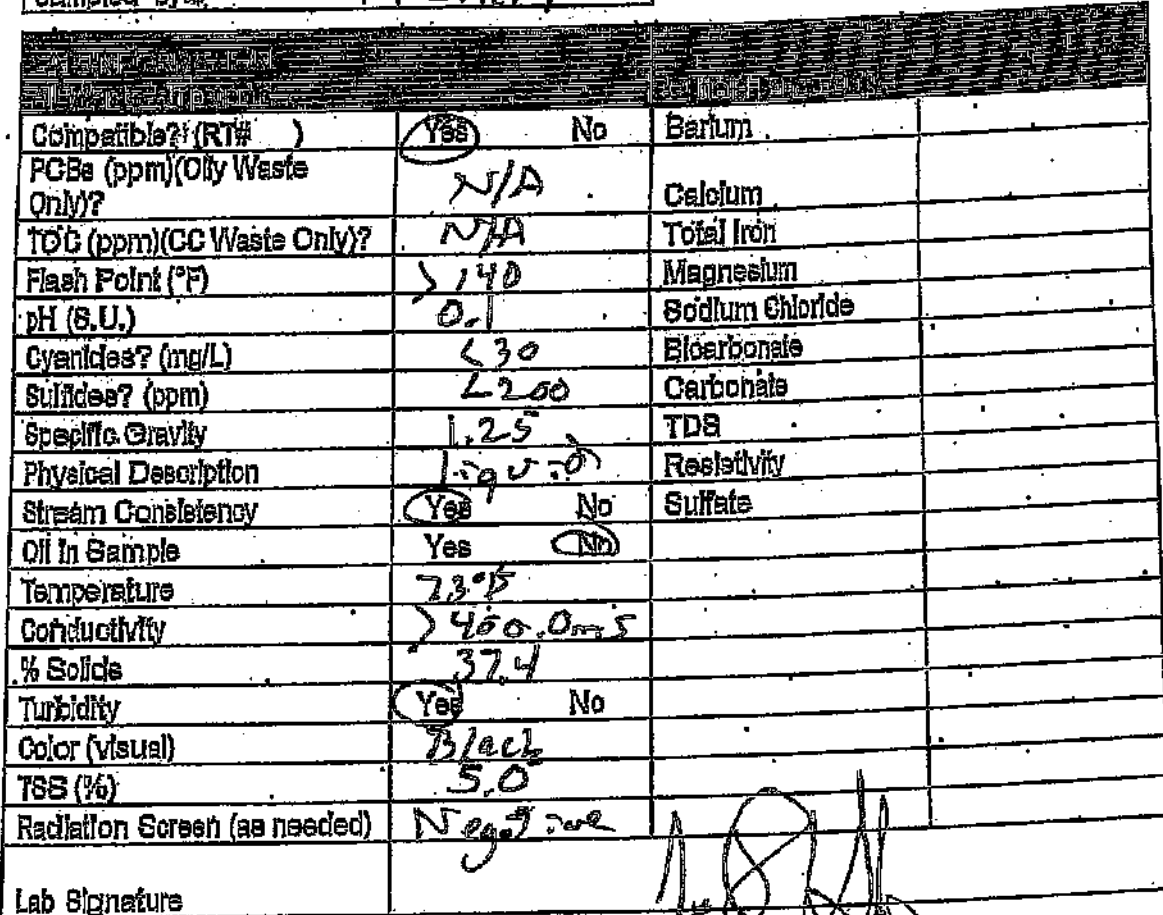 Sampled By:
Compatible? (RT# ) Yes No Barium
PCBs (ppm)(Oily Waste
Only)? N/A Calcium
TOC (ppm)(CC Waste Only)? N/A Total Iron
Flash Point (°F) >140 Magnesium
pH (S.U.) 0.1 Sodium Chloride
Cyanides? (mg/L) <30 Bicarbonate
Sulfides? (ppm) <200 Carbonate
Specific Gravity 1.25 TDS
Physical Description liquid Resistivity
Stream Consistency Yes No Sulfate
Oil in Sample Yes No
Temperature 73°F
Conductivity >400.0mS
% Solids 37.4
Turbidity Yes No
Color (visual) Black
TSS (%) 5.0
Radiation Screen (as needed) Negative
Lab Signature